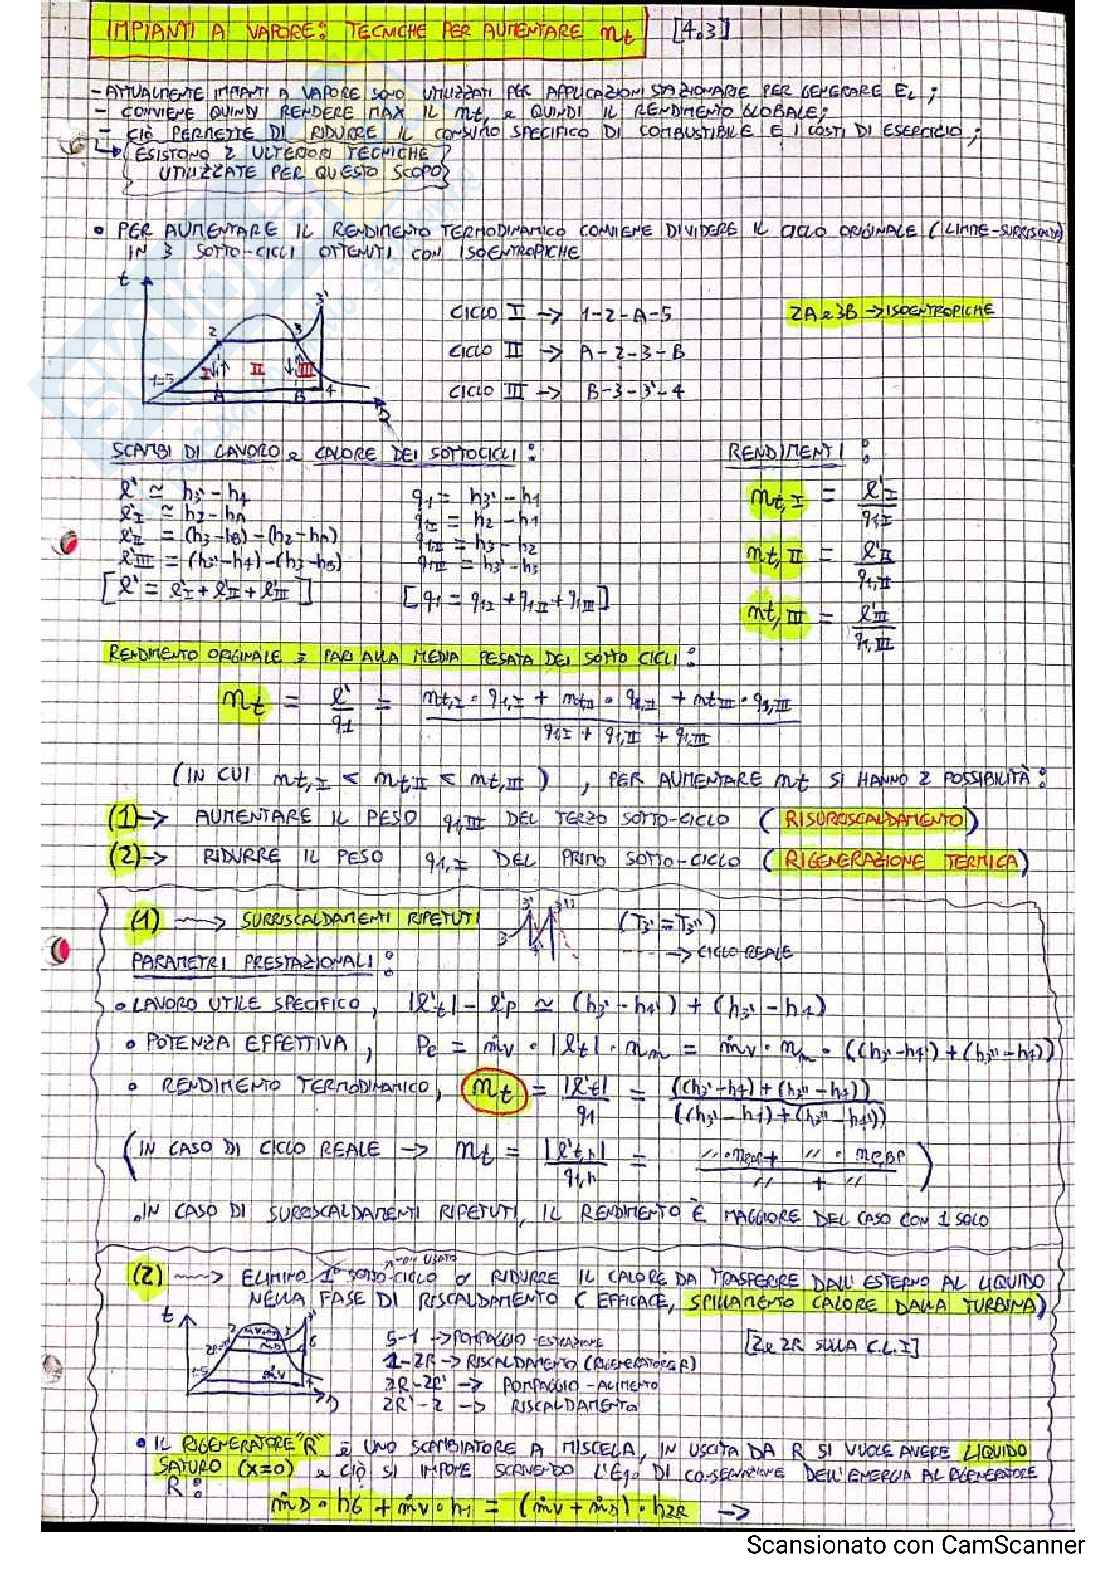 IMPIANTI A VAPORE: TECNICHE PER AUMENTARE ηt [4.3]
- ATTUALMENTE IMPIANTI A VAPORE SONO UTILIZZATI PER APPLICAZIONI STAZIONARIE PER GENERARE EL ;
- CONVIENE QUINDI RENDERE MAX IL ηt, e QUINDI IL RENDIMENTO GLOBALE;
- CIÒ PERMETTE DI RIDURRE IL CONSUMO SPECIFICO DI COMBUSTIBILE E I COSTI DI ESERCIZIO ;
ESISTONO 2 ULTERIORI TECNICHE
UTILIZZATE PER QUESTO SCOPO
• PER AUMENTARE IL RENDIMENTO TERMODINAMICO CONVIENE DIVIDERE IL CICLO ORIGINALE (
IN 3 SOTTO-CICLI OTTENUTI CON ISOENTROPICHE
t
CICLO I → 1-2-A-5
2A e 3B → ISOENTROPICHE
CICLO II → A-2-3-B
CICLO III → B-3-3'-4
SCAMBI DI LAVORO e CALORE DEI SOTTOCICLI :
RENDIMENTI :
l' ≃ h3' - h4
q1 = h3' - h1
ηt,I = l'I / q1,I
l'I ≃ h2 - hA
q1I = h2 - h1
l'II = (h3-hB)-(h2-hA)
q1II = h3 - h2
ηt,II = l'II / q1,II
l'III = (h3'-h4)-(h3-hB)
q1III = h3' - h3
[l' = l'I + l'II + l'III]
[q1 = q1I + q1,II + q1III]
ηt,III = l'III / q1,III
RENDIMENTO ORIGINALE = PARI ALLA MEDIA PESATA DEI SOTTO CICLI :
ηt = l' / q1 = (ηt,I · q1,I + ηtII · q1,II + ηtIII · q1,III) / (q1,I + q1,II + q1,III)
(IN CUI ηt,I < ηt,II < ηt,III) , PER AUMENTARE ηt SI HANNO 2 POSSIBILITÀ :
(1) → AUMENTARE IL PESO q1,III DEL TERZO SOTTO-CICLO (RISURRISCALDAMENTO)
(2) → RIDURRE IL PESO q1,I DEL PRIMO SOTTO-CICLO (RIGENERAZIONE TERMICA)
(1) → SURRISCALDAMENTI RIPETUTI (T3' = T3'')
--→ CICLO REALE
PARAMETRI PRESTAZIONALI :
• LAVORO UTILE SPECIFICO, |l't| - l'p ≃ (h3' - h4') + (h3'' - h4)
• POTENZA EFFETTIVA, Pe = ṁv · |lt| · ηm = ṁv · ηm · ((h3' - h4') + (h3'' - h4))
• RENDIMENTO TERMODINAMICO, ηt = |l't| / q1 = ((h3' - h4') + (h3'' - h4)) / ((h3' - h1) + (h3'' - h4'))
(IN CASO DI CICLO REALE → ηt =
. IN CASO DI SURRISCALDAMENTI RIPETUTI, IL RENDIMENTO È MAGGIORE DEL CASO CON 1 SOLO
NON USATO
(2) → ELIMINO 1° SOTTO-CICLO o RIDURRE IL CALORE DA TRASFERIRE DALL'ESTERNO AL LIQUIDO
NELLA FASE DI RISCALDAMENTO (EFFICACE, SPILLAMENTO CALORE DALLA TURBINA)
t
5-1 → POMPAGGIO-ESTRAZIONE
[2 e 2R SULLA C.L.I]
1-2R → RISCALDAMENTO (RIGENERATORE R)
2R-2R' → POMPAGGIO-ALIMENTO
2R'-2 → RISCALDAMENTO
• IL RIGENERATORE "R" è UNO SCAMBIATORE A MISCELA, IN USCITA DA R SI VUOLE AVERE LIQUIDO
SATURO (X=0) e CIÒ SI IMPONE SCRIVENDO L'EQ. DI CONSERVAZIONE DELL'ENERGIA AL RIGENERATORE
R :
ṁD · h6 + ṁv · h1 = (ṁv + ṁD) · h2R →
Scansionato con CamScanner